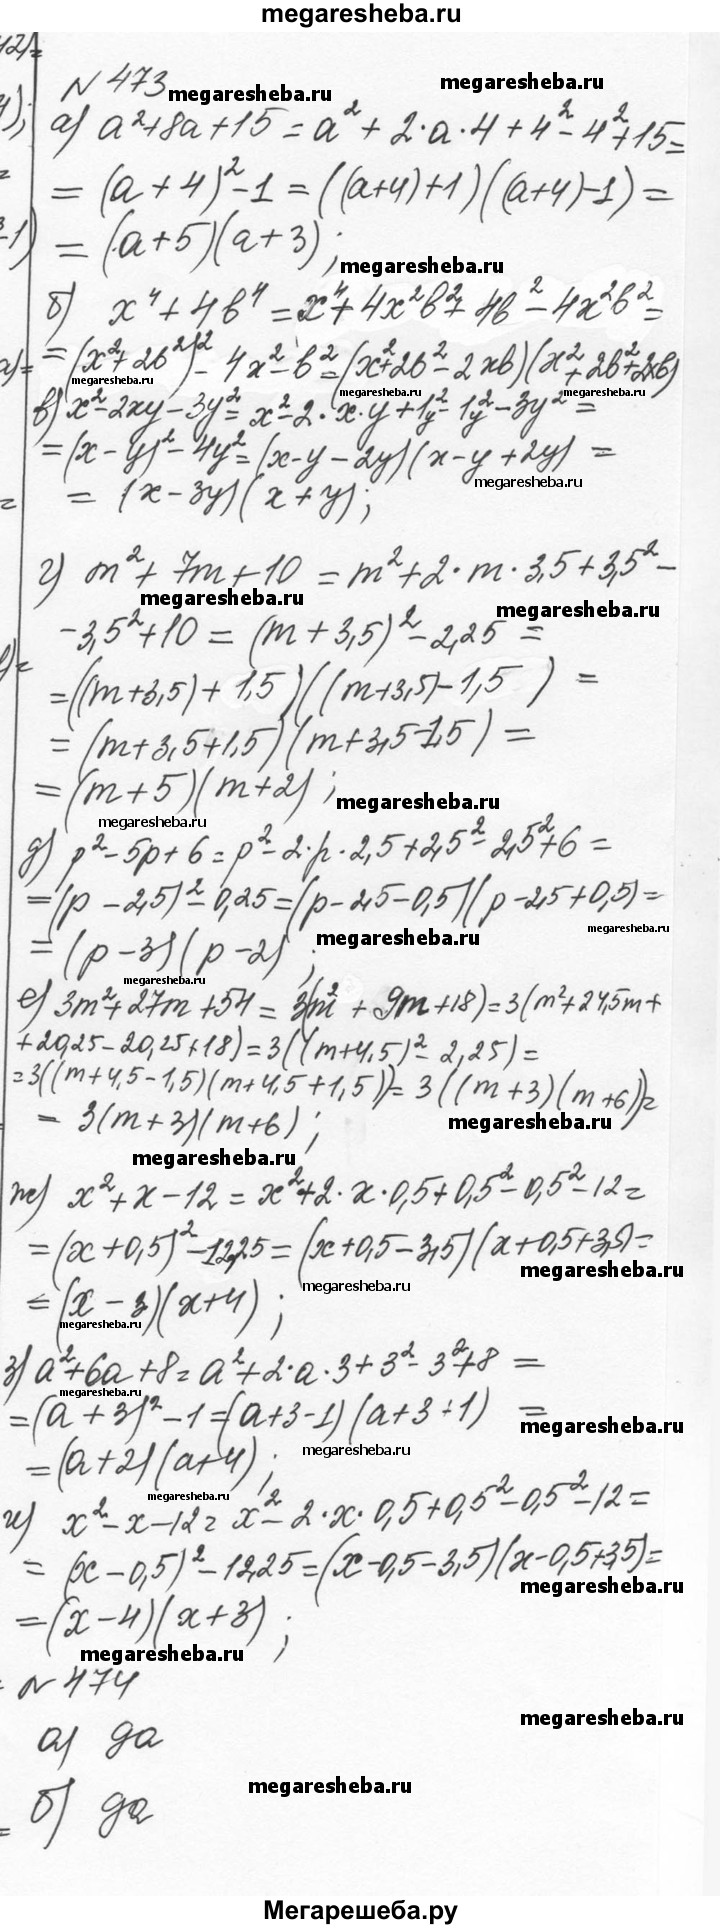 megaresheba.ru
12)=
№ 473
megaresheba.ru
megaresheba.ru
а) a²+8a+15 = a² + 2·a·4 + 4² - 4² + 15 =
= (a+4)² - 1 = ((a+4)+1)((a+4)-1) =
= (a+5)(a+3);
megaresheba.ru
б) x⁴ + 4b⁴ = x⁴ + 4x²b² + 4b² - 4x²b² =
= (x²+2b²)² - 4x² - b² = (x²+2b²-2xb)(x²+2b²+2xb)
megaresheba.ru
megaresheba.ru
megaresheba.ru
в) x²-2xy-3y² = x²-2·x·y+1y²-1y²-3y² =
= (x-y)² - 4y² = (x-y-2y)(x-y+2y) =
megaresheba.ru
= (x-3y)(x+y);
г) m² + 7m + 10 = m² + 2·m·3,5 + 3,5² -
megaresheba.ru
megaresheba.ru
- 3,5² + 10 = (m+3,5)² - 2,25 =
= ((m+3,5) + 1,5)((m+3,5) - 1,5) =
= (m+3,5+1,5)(m+3,5-1,5) =
= (m+5)(m+2);
megaresheba.ru
megaresheba.ru
д) p²-5p+6 = p²-2·p·2,5+2,5²-2,5²+6 =
= (p-2,5)²-0,25 = (p-2,5-0,5)(p-2,5+0,5) =
megaresheba.ru
megaresheba.ru
= (p-3)(p-2);
megaresheba.ru
е) 3m²+27m+54 = 3(m² + 9m+18) = 3(m²+2·4,5m+
+20,25-20,25+18) = 3((m+4,5)²-2,25) =
= 3((m+4,5-1,5)(m+4,5+1,5)) = 3((m+3)(m+6)) =
megaresheba.ru
= 3(m+3)(m+6);
megaresheba.ru
ж) x²+x-12 = x²+2·x·0,5+0,5²-0,5²-12 =
= (x+0,5)²-12,25 = (x+0,5-3,5)(x+0,5+3,5) =
megaresheba.ru
megaresheba.ru
= (x-3)(x+4);
megaresheba.ru
з) a²+6a+8 = a²+2·a·3+3²-3²+8 =
megaresheba.ru
= (a+3)²-1 = (a+3-1)(a+3+1) =
megaresheba.ru
megaresheba.ru
= (a+2)(a+4);
megaresheba.ru
и) x²-x-12 = x²-2·x·0,5+0,5²-0,5²-12 =
= (x-0,5)²-12,25 = (x-0,5-3,5)(x-0,5+3,5) =
megaresheba.ru
= (x-4)(x+3);
megaresheba.ru
№ 474
megaresheba.ru
а) да
megaresheba.ru
б) да
Мегарешеба.ру